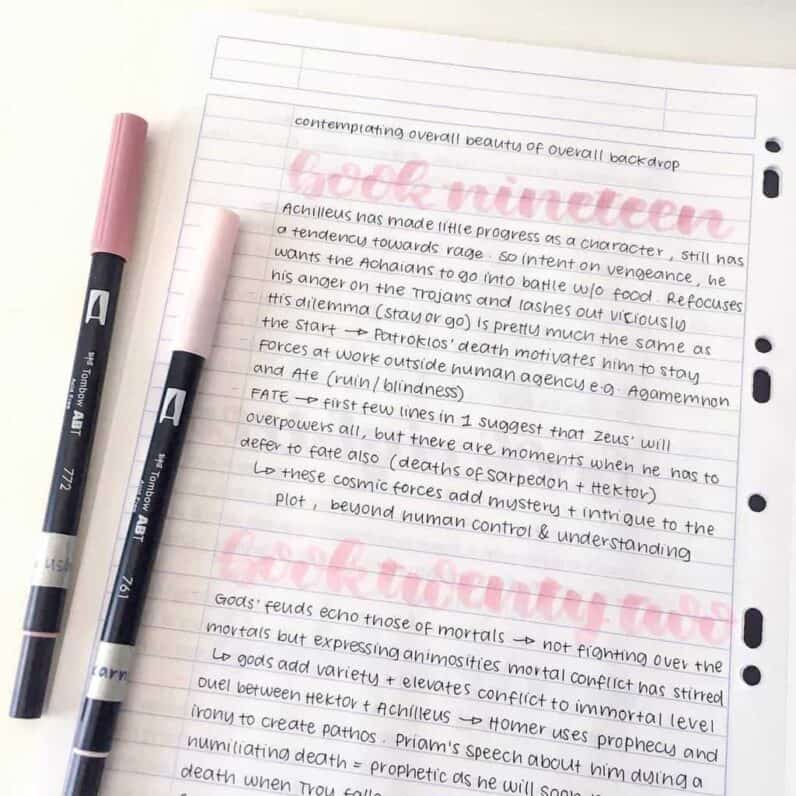 contemplating overall beauty of overall backdrop
Book nineteen
Achilleus has made little progress as a character, still has
a tendency towards rage. so intent on vengeance, he
wants the Achaians to go into battle w/o food. Refocuses
his anger on the Trojans and lashes out viciously
His dilemma (stay or go) is pretty much the same as
the start → Patroklos' death motivates him to stay
Forces at work outside human agency e.g. Agamemnon
and Ate (ruin/blindness)
FATE → first few lines in 1 suggest that Zeus' will
overpowers all, but there are moments when he has to
defer to fate also (deaths of Sarpedon + Hektor)
↳ these cosmic forces add mystery + intrigue to the
plot, beyond human control & understanding
Book twenty two
Gods' feuds echo those of mortals → not fighting over the
mortals but expressing animosities mortal conflict has stirred
↳ gods add variety + elevates conflict to immortal level
Duel between Hektor + Achilleus → Homer uses prophecy and
irony to create pathos. Priam's speech about him dying a
humiliating death = prophetic as he will soon
death when Troy falls
Tombow ABT
772
Tombow ABT
761
carn